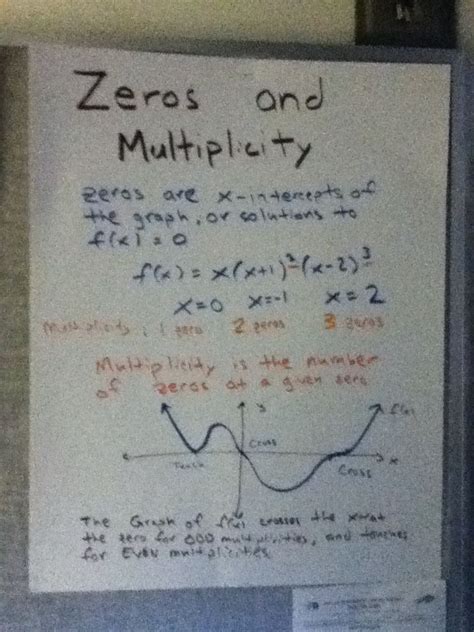 Zeros and
Multiplicity
zeros are x-intercepts of
the graph, or solutions to
f(x) = 0
f(x) = x(x+1)²(x-2)³
x=0 x=-1 x=2
Multiplicity: 1 zero 2 zeros 3 zeros
Multiplicity is the number
of zeros at a given zero
y f(x)
Cross
x
Touch Cross
The Graph of f(x) crosses the x at
the zero for ODD multiplicities, and touches
for EVEN multiplicities